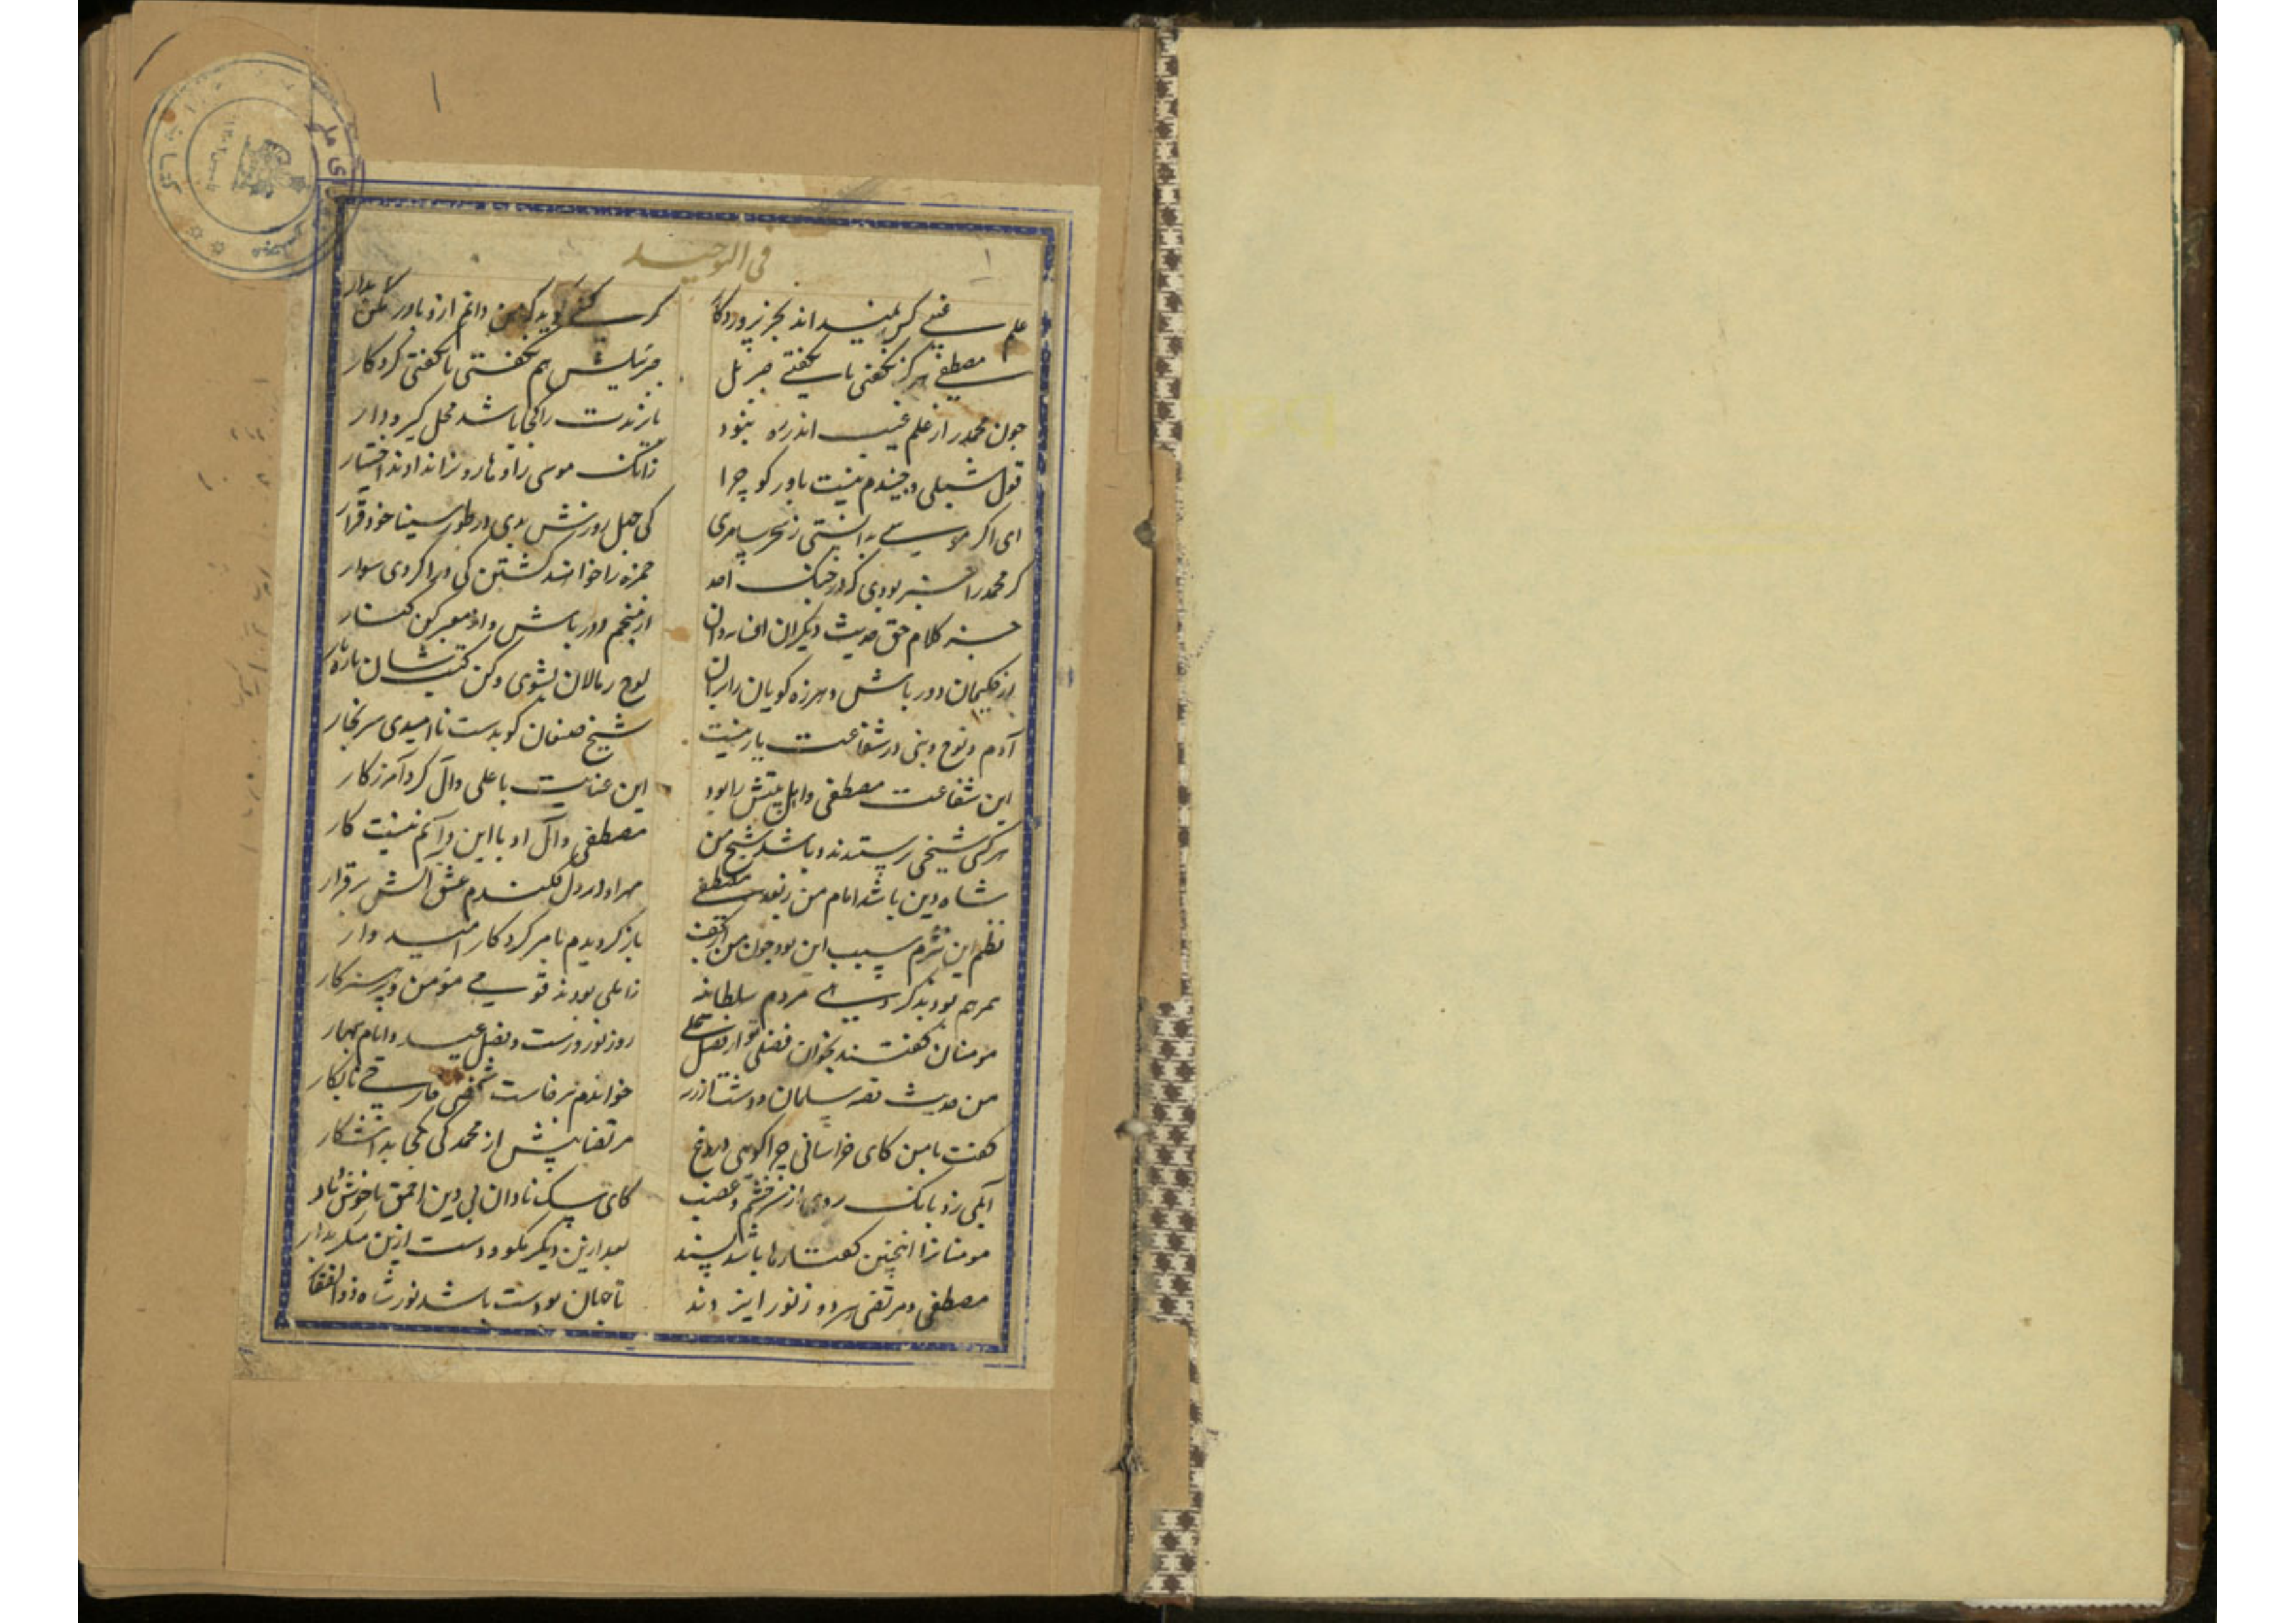 ۱
۱
فی التوحید
علم غیبی کس نمیداند بجز پروردگار
کر کسی کوید که من دانم ازو باور مدار
مصطفی هرکز نکفتی تا نکفتی جبرئیل
جبرئیلش هم نکفتی تا نکفتی کردکار
چون محمد را از علم غیب اندر نبود
را کجا باشد محل کیر و دار
قول شبلی و جنیدم نیست باور کو چرا
زانک موسی را و هارون را ندادند اختیار
ای اکر موسی بدانستی ز سحر سامری
کی چهل روزش بدی در طور سینا خود قرار
کر محمد را خبر بودی که در جنک احد
حمزه را خواهند کشتن کی ورا کردی سوار
جز کلام حق حدیث دیکران افسانه دان
از منجم دور باش و از معبر کن کنار
از حکیمان دور باش و هرزه کویان را بران
لوح رمالان بشوی و کن کتبشان پاره پار
آدم و نوح و نبی در شفاعت یار نیست
شیخ صنعان کو بدست ناامیدی سر بخار
این شفاعت مصطفی و اهل بیتش را بود
این عنایت با علی و آل کرد آمرزکار
هر کسی شیخی پرستیدند و باشد شیخ من
مصطفی و آل او با این و آنم نیست کار
شاه دین باشد امام من ز بعد مصطفی
مهر او در دل فکندم عشق آلش برقرار
نظم این نثرم سبب این بود چون من از نجف
باز کردیدم بامر کردکار امیدوار
همرهم بودند مردم سلطانیه
زاملی بودند قومی مؤمن و پرهیزکار
مومنان کفتند بخوان فضلی تو از فضل علی
روز نوروزست و فصل عید و ایام بهار
من حدیث قصه سلمان و دشت ارژنه
خواندم برخاست شخصی فارسی نابکار
کفت با من کای خراسانی چرا کویی دروغ
مرتضا پیش از محمد کی کجا بد آشکار
آملی زد بانک بروی از سر خشم و غضب
کای سک نادان بی دین احمق ناخوش تبار
مومنانرا اینچنین کفتارها باشد پسند
بعد ازین دیکر مکو و دست ازین منکر بدار
مصطفی و مرتضی هر دو ز نور ایزدند
تا جهان بودست باشد نور شاه ذوالفقار